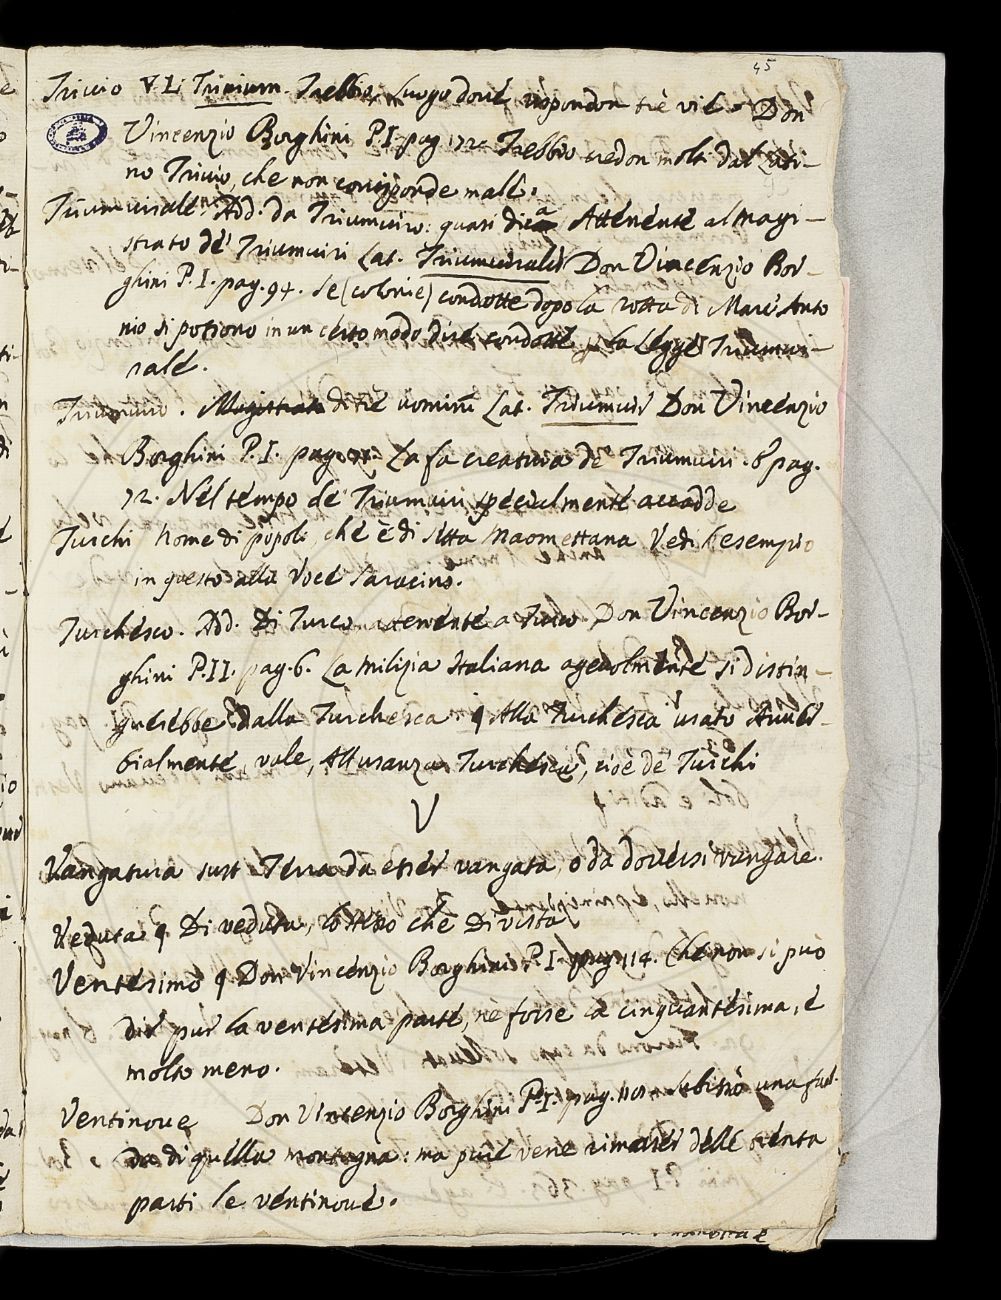 45
Trivio V. L. Trivium. Trebbio. Luogo dove rispondon trè vie. Don
Vincenzio Borghini P.I. pag. 172. Trebbio credon molti dal Lati-
no Trivio, che non corrisponde male.
Triumvirale. Add. da Triumviro: quasi dica Attenente al Magi-
strato de' Triumviri Lat. Triumviralis Don Vincenzio Bor-
ghini P.I. pag. 94. Se (colonie) condotte dopo la rotta di Marc'Anto
nio si potiono in un certo modo dire condotte p. la Legge Triumvi-
rale.
Triumviro. Magistrato di tre uomini Lat. Triumvir Don Vincenzio
Borghini P.I. pag. La fa creatura de' Triumviri. & pag.
72. Nel tempo de' Triumviri specialmente accadde
Turchi Nome di popoli, che è di sétta Maomettana Vedi l'esempio
in questo alla Voce Saracino.
Turchesco. Add. Di Turco attenente a Turco Don Vincenzio Bor-
ghini P.II. pag. 6. La milizia Italiana agevolmente si distin-
guerebbe dalla Turchesca ¶ Alla Turchesca usato Avver-
bialmente, vale, All'usanza Turchesca, cioè de' Turchi
V
Vangatura sust Terra da esser vangata, o da doversi vangare.
Veduta ¶ Di veduta, lo stesso che Di vista
Ventesimo ¶ Don Vincenzio Borghini P.I. pag. 114. Che non si può
dir pur la ventesima parte, nè forse la cinquantesima, e
molto meno.
Ventinove Don Vincenzio Borghini P.I. pag. Subissò una fal-
da di quella montagna: ma pur vene rimaser delle trenta
parti le ventinove.